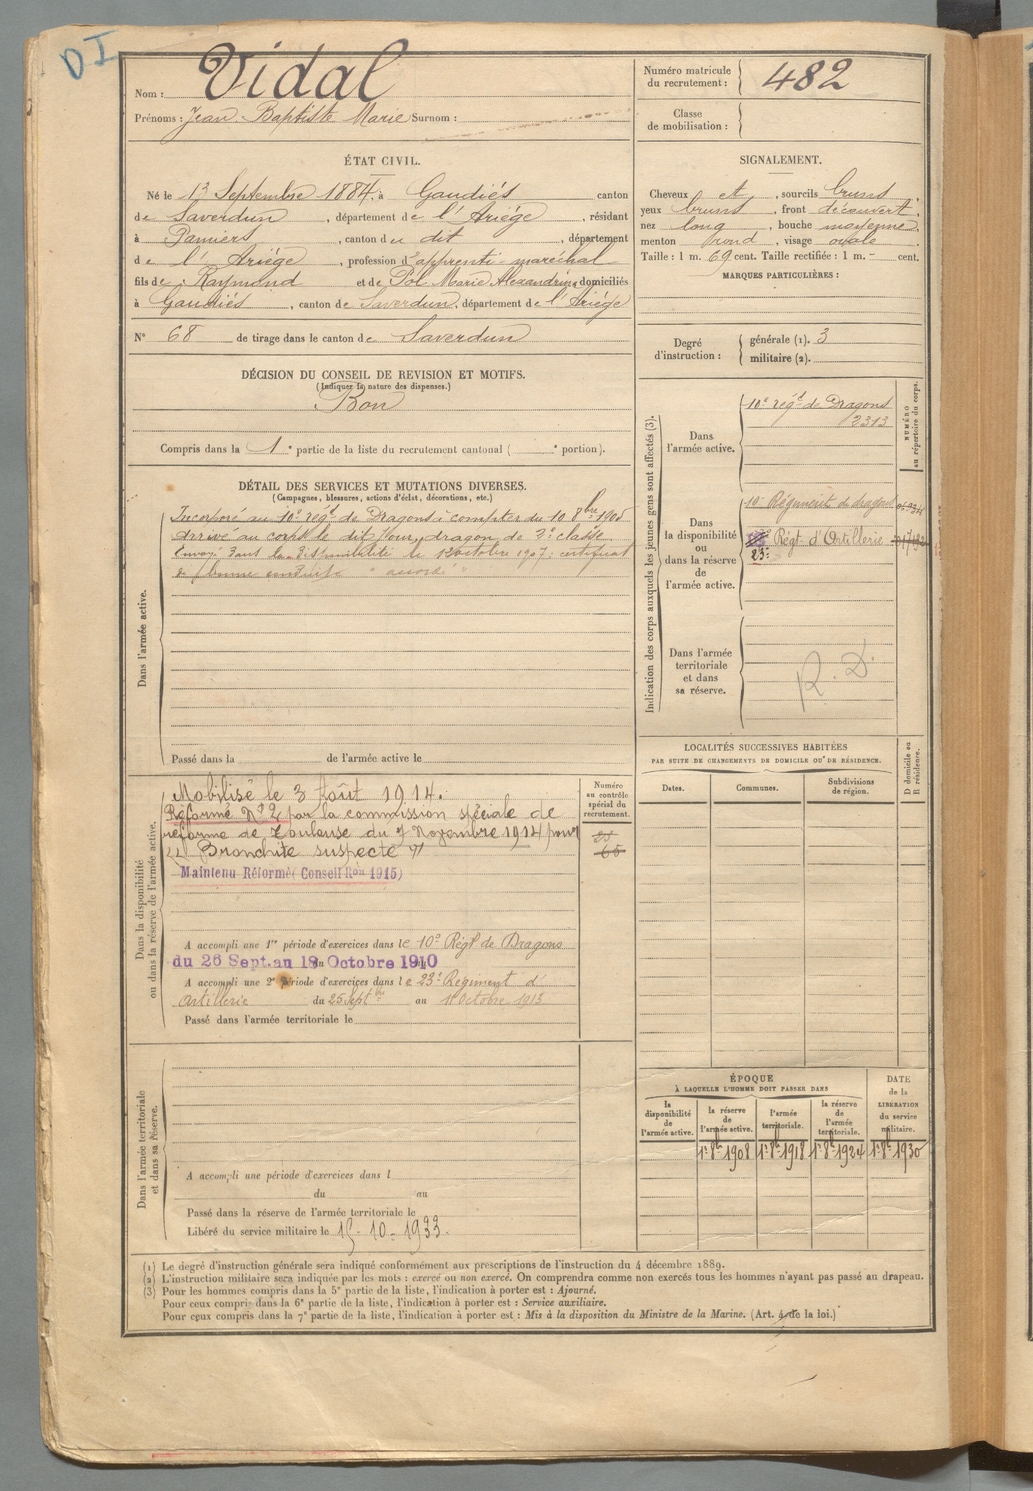 DI
Nom : Vidal
Prénoms : Jean Baptiste Marie Surnom :
Numéro matricule du recrutement : 482
Classe de mobilisation :
ÉTAT CIVIL.
Né le 13 Septembre 1884, à Gaudiés canton
de Saverdun, département de l'Ariége, résidant
à Pamiers, canton du dit, département
de l'Ariége, profession d'apprenti-maréchal
fils de Raymond et de Pol Marie Alexandrine domiciliés
à Gaudiés, canton de Saverdun, département de l'Ariége
N° 68 de tirage dans le canton de Saverdun
SIGNALEMENT.
Cheveux et, sourcils bruns,
yeux bruns, front découvert,
nez long, bouche moyenne,
menton rond, visage ovale.
Taille : 1 m. 69 cent. Taille rectifiée : 1 m. - cent.
MARQUES PARTICULIÈRES :
Degré d'instruction : générale (1). 3
militaire (2).
DÉCISION DU CONSEIL DE REVISION ET MOTIFS.
(Indiquer la nature des dispenses.)
Bon
Compris dans la 1e partie de la liste du recrutement cantonal ( e portion).
DÉTAIL DES SERVICES ET MUTATIONS DIVERSES.
(Campagnes, blessures, actions d'éclat, décorations, etc.)
Dans l'armée active.
Incorporé au 10e régt de Dragons à compter du 10 8bre 1905
arrivé au corps le dit jour, dragon de 2e classe
Envoyé dans la disponibilité le 12 octobre 1907; certificat
de bonne conduite "accordé"
Passé dans la de l'armée active le
Indication des corps auxquels les jeunes gens sont affectés (3).
NUMÉRO au répertoire du corps.
Dans l'armée active.
10e régt de Dragons
2313
Dans la disponibilité ou dans la réserve de l'armée active.
10e Régiment de dragons
Régt d'Artillerie
23e
Dans l'armée territoriale et dans sa réserve.
R. D.
Dans la disponibilité ou dans la réserve de l'armée active.
Mobilisé le 3 Août 1914.
Réformé N° 2 par la commission spéciale de
réforme de Toulouse du 7 Novembre 1914 pour
"Bronchite suspecte"
Maintenu Réformé (Conseil Ron 1915)
Numéro au contrôle spécial du recrutement.
A accompli une 1re période d'exercices dans le 10e Régt de Dragons
du 26 Sept. au 18 Octobre 1910
A accompli une 2e période d'exercices dans le 23e Régiment d'
Artillerie du 25 Septbre au 11 Octobre 1913
Passé dans l'armée territoriale le
LOCALITÉS SUCCESSIVES HABITÉES
PAR SUITE DE CHANGEMENTS DE DOMICILE OU DE RÉSIDENCE.
Dates.
Communes.
Subdivisions de région.
D domicile ou R résidence.
Dans l'armée territoriale et dans sa réserve.
A accompli une période d'exercices dans l
du au
Passé dans la réserve de l'armée territoriale le
Libéré du service militaire le 15-10-1933.
ÉPOQUE
À LAQUELLE L'HOMME DOIT PASSER DANS
DATE de la LIBÉRATION du service militaire.
la disponibilité de l'armée active.
la réserve de l'armée active.
l'armée territoriale.
la réserve de l'armée territoriale.
1er 8bre 1908 1er 8bre 1918 1er 8bre 1924 1er 8bre 1930
(1) Le degré d'instruction générale sera indiqué conformément aux prescriptions de l'instruction du 4 décembre 1889.
(2) L'instruction militaire sera indiquée par les mots : exercé ou non exercé. On comprendra comme non exercés tous les hommes n'ayant pas passé au drapeau.
(3) Pour les hommes compris dans la 5e partie de la liste, l'indication à porter est : Ajourné.
Pour ceux compris dans la 6e partie de la liste, l'indication à porter est : Service auxiliaire.
Pour ceux compris dans la 7e partie de la liste, l'indication à porter est : Mis à la disposition du Ministre de la Marine. (Art. 4 de la loi.)